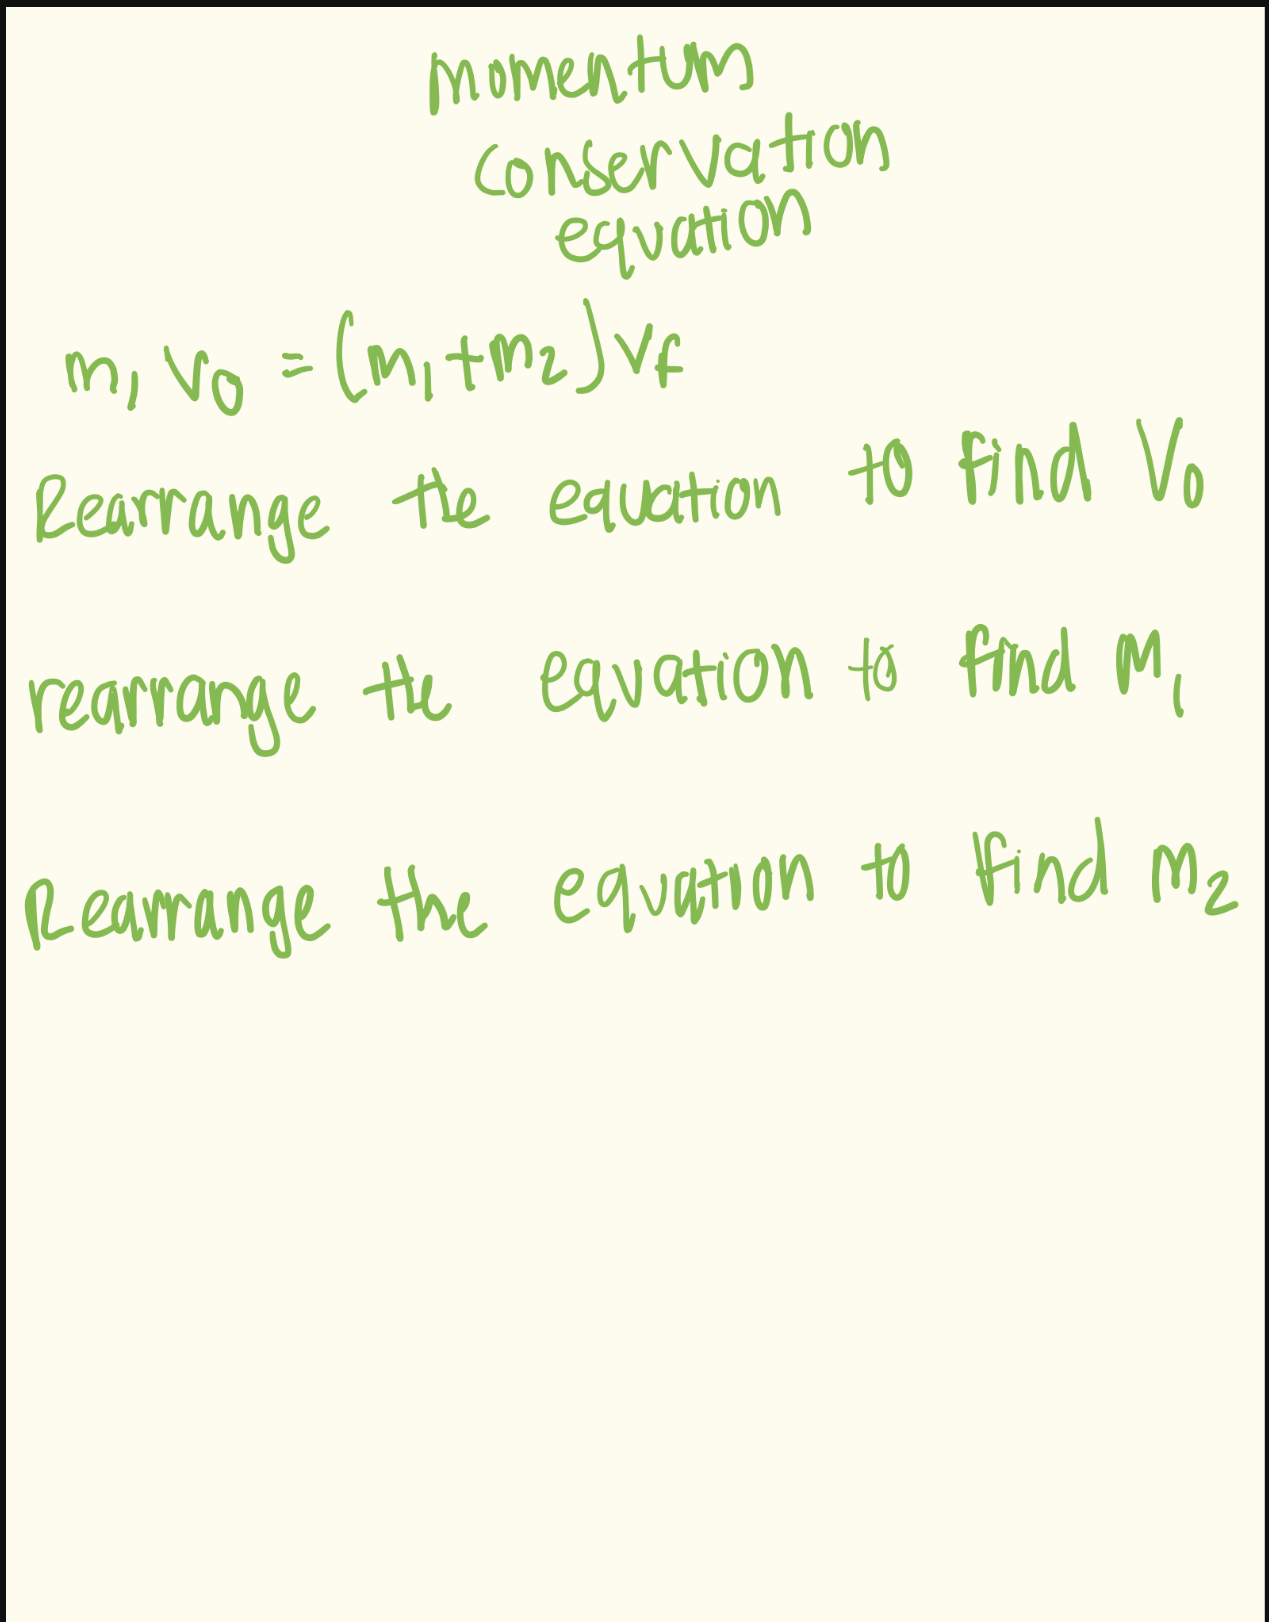 momentum
conservation
equation
m₁ v₀ = (m₁+m₂) v_f
Rearrange the equation to find V₀
rearrange the equation to find m₁
Rearrange the equation to find m₂